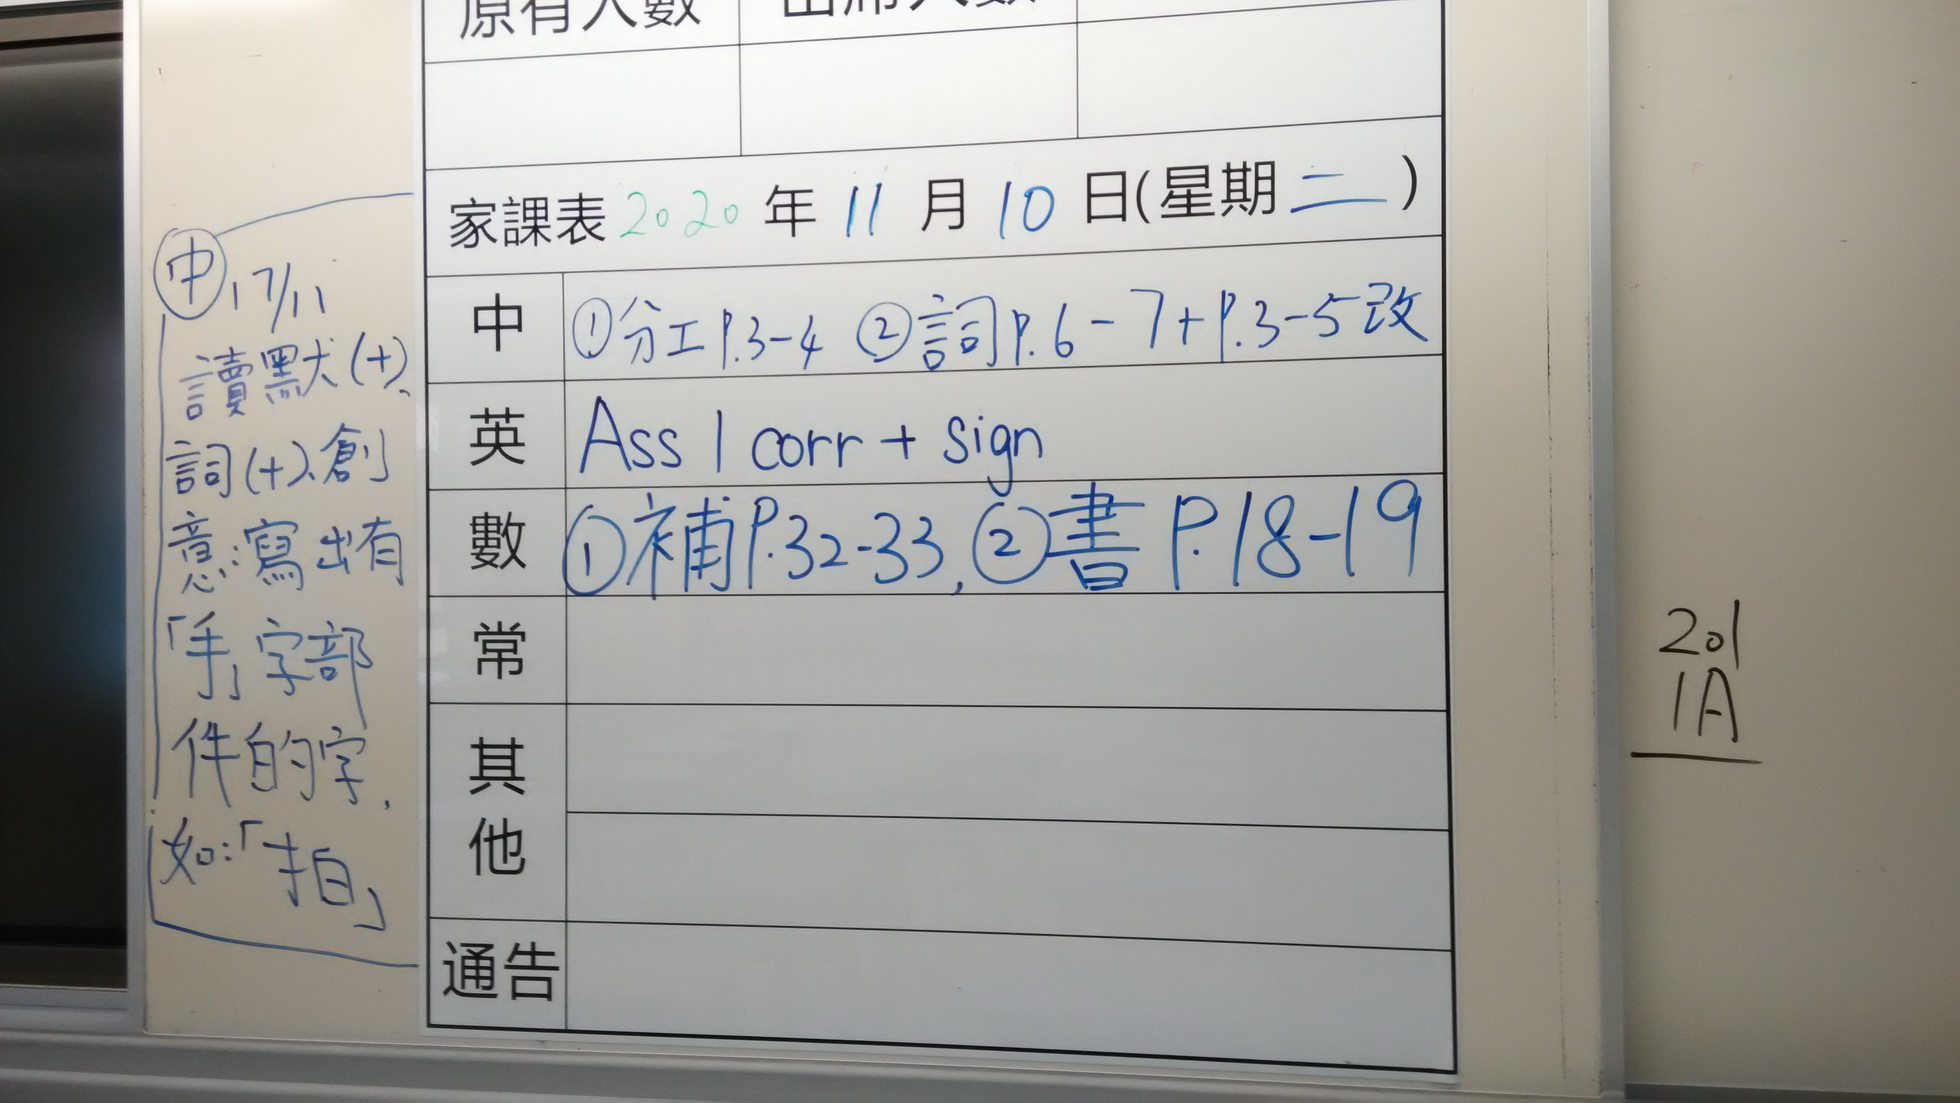 原有人數 出席人數
家課表 2020 年 11 月 10 日(星期二)
中 ①分工P.3-4 ②詞P.6-7+P.3-5改
英 Ass 1 corr + sign
數 ①補P.32-33, ②書 P.18-19
常
其他
通告
中 17/11
讀默(十)、
詞(十)、創
意:寫出有
「手」字部
件的字,
如:「拍」
201
1A